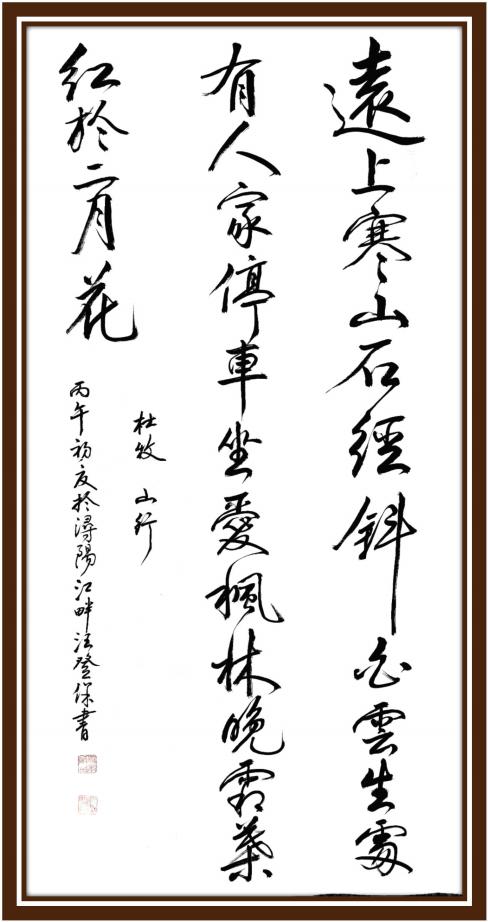 遠上寒山石徑斜白雲生處
有人家停車坐愛楓林晚霜葉
紅於二月花
杜牧 山行
丙午初夏於潯陽江畔汪登保書